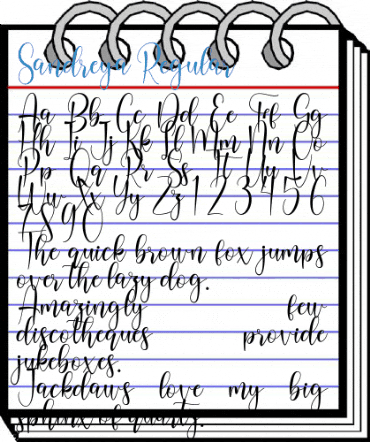 Sandreya Regular
Aa Bb Cc Dd Ee Ff Gg
Hh Ii Jj Kk Ll Mm Nn Oo
Pp Qq Rr Ss Tt Uu Vv
Ww Xx Yy Zz 1 2 3 4 5 6
7 8 9 0
The quick brown fox jumps
over the lazy dog.
Amazingly few
discotheques provide
jukeboxes.
Jackdaws love my big
sphinx of quartz.